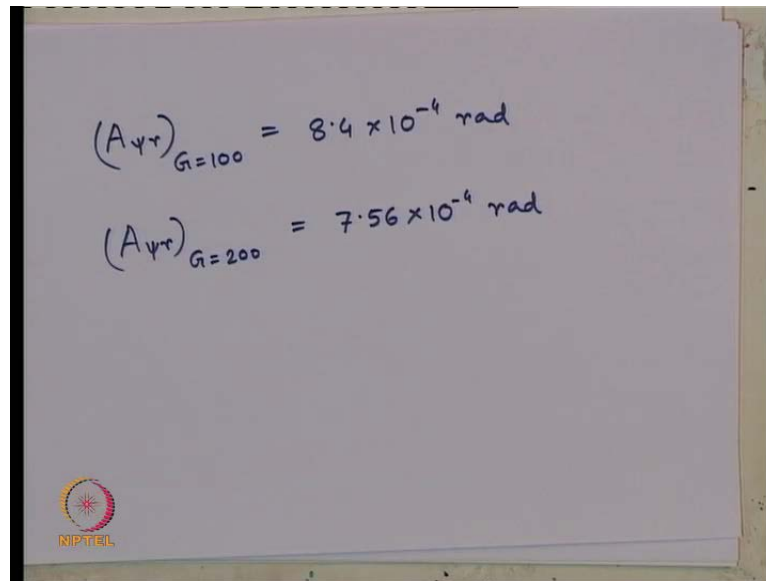 (Aψr)G=100 = 8.4 × 10⁻⁴ rad
(Aψr)G=200 = 7.56 × 10⁻⁴ rad
NPTEL